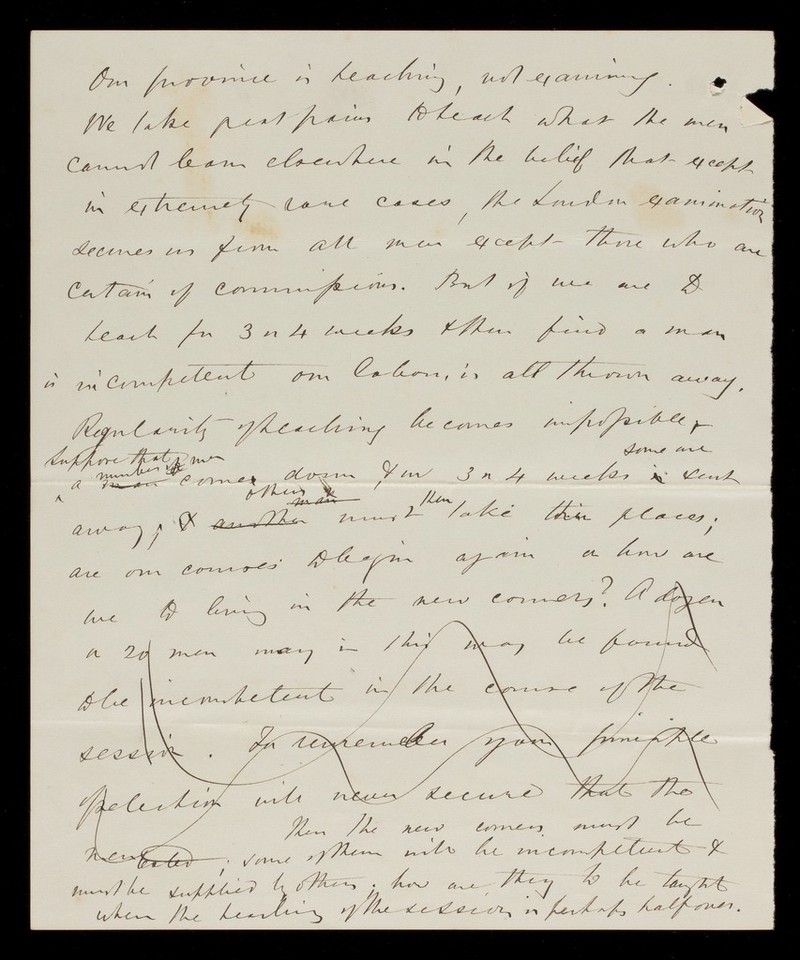 Our province is teaching, not examining.
We take great pains to teach what the men
cannot learn elsewhere in the belief that except
in extremely rare cases, the London examination
secures us from all men except those who are
certain of commissions. But if we are to
teach for 3 or 4 weeks & then find a man
is incompetent our labour is all thrown away.
Regularity of teaching becomes impossible &
suppose that
number of men
some are
a man comes down & in 3 or 4 weeks is sent
others man then
away, & another must take their places;
are our courses to begin again or how are
we to bring in the new comers? A dozen
or 20 men may in this way be found
to be incompetent in the course of the
session. For remember your principle
of selection will never secure that the
then the new comers must be
; some of them will be incompetent &
must be supplied by others; how are they to be taught
when the teaching of the session is perhaps half over.